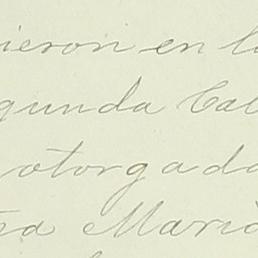 ieron en l
gunda Cal
otorgada
ra Maria